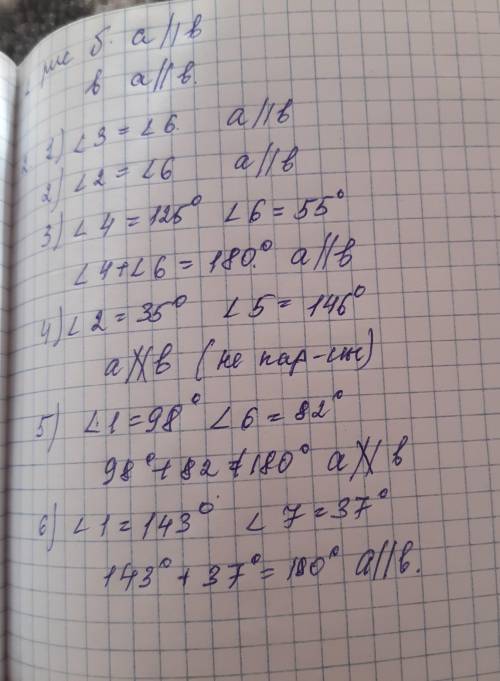 рис б. a||в
в a||в.
2 1) ∠3 = ∠6 a||в
2) ∠2 = ∠6 a||в
3) ∠4 = 125° ∠6 = 55°
∠4+∠6 = 180.° a||в
4) ∠2 = 35° ∠5 = 146°
a∦в (не пар-ны)
5) ∠1 = 98° ∠6 = 82°
98°+82≠180° a∦в
6) ∠1 = 143° ∠7 = 37°
143° + 37° = 180° a||в.